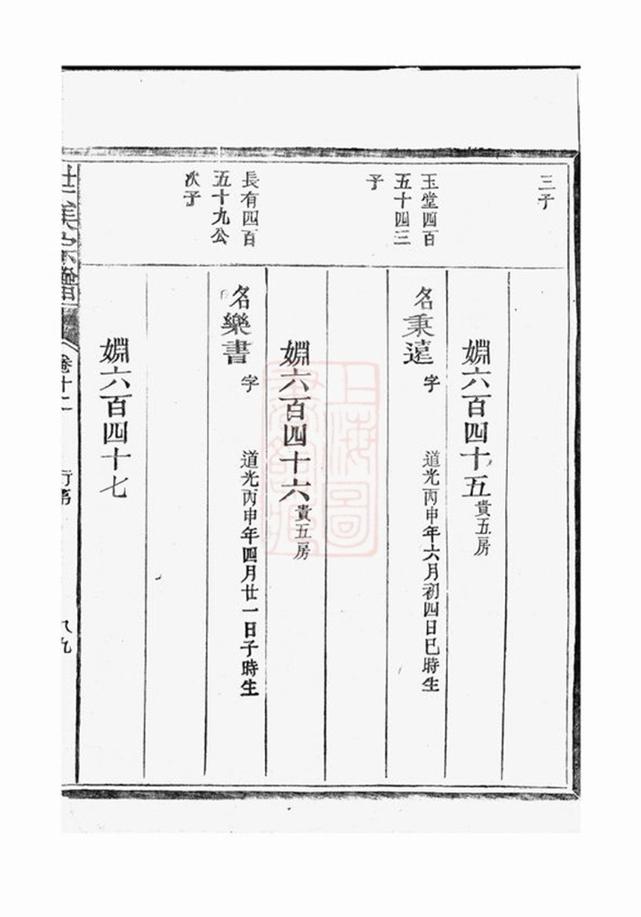 三子
嫺六百四十五貴五房
玉堂四百
五十四三
子
名秉遠 字 道光丙申年六月初四日巳時生
嫺六百四十六貴五房
長有四百
五十九公
次子
名樂書 字 道光丙申年四月廿一日子時生
嫺六百四十七
卷十二 行第